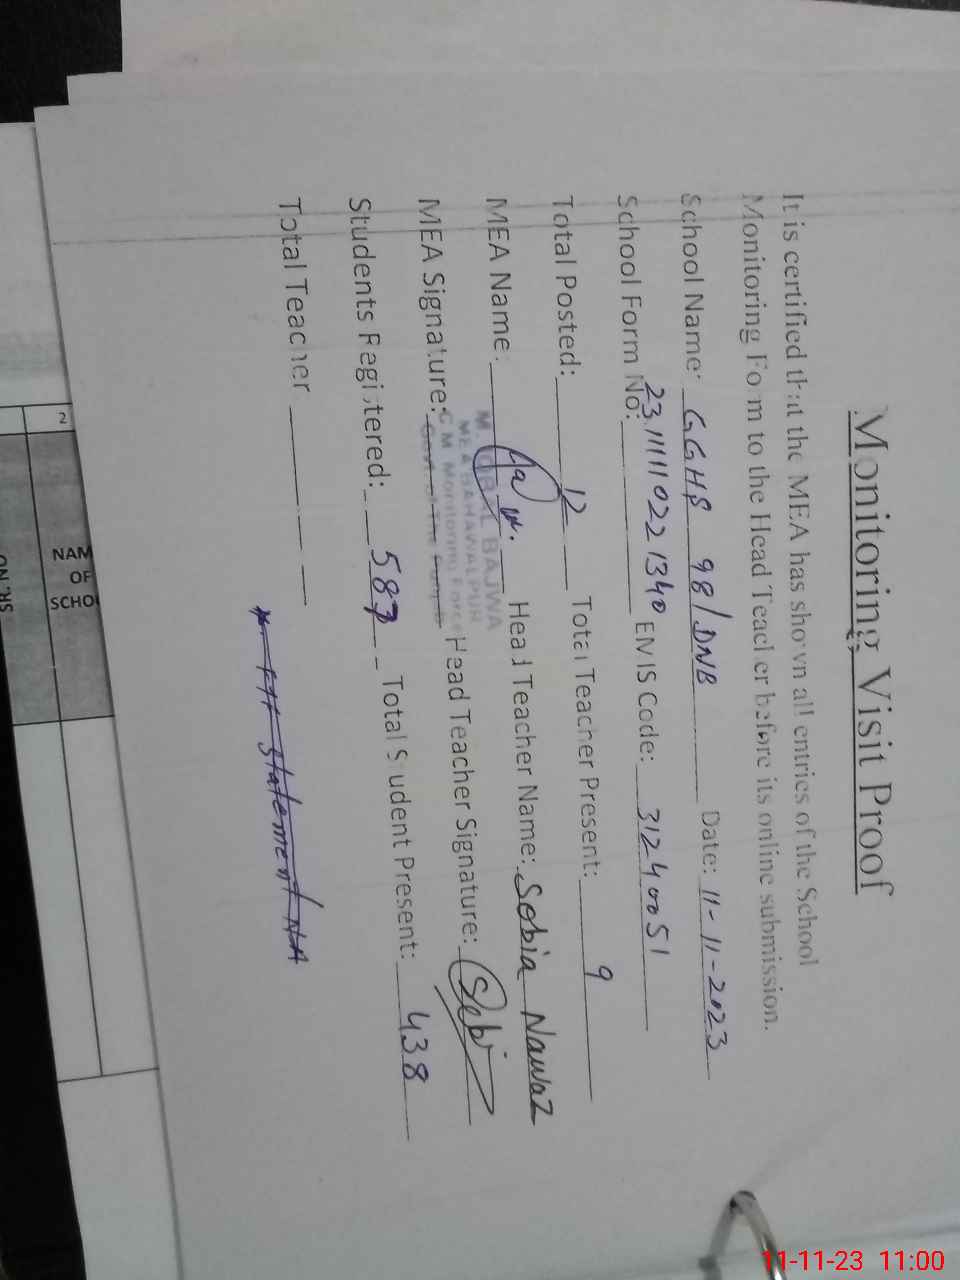 Monitoring Visit Proof
It is certified that the MEA has shown all entries of the School
Monitoring Form to the Head Teacher before its online submission.
School Name: GGHS 98/DNB Date: 11-11-2023
School Form No: 23111110221340 EMIS Code: 31240051
Total Posted: 12 Total Teacher Present: 9
MEA Name: Head Teacher Name: Sobia Nawaz
M. IQBAL BAJWA
MEA BAHAWALPUR
C.M Monitoring Force
Govt of The Punjab
MEA Signature: Head Teacher Signature: Sobi
Students Registered: 587 Total Student Present: 438
Total Teacher
statement NA
2
NAM
OF
SCHO
SR. NO
11-11-23 11:00